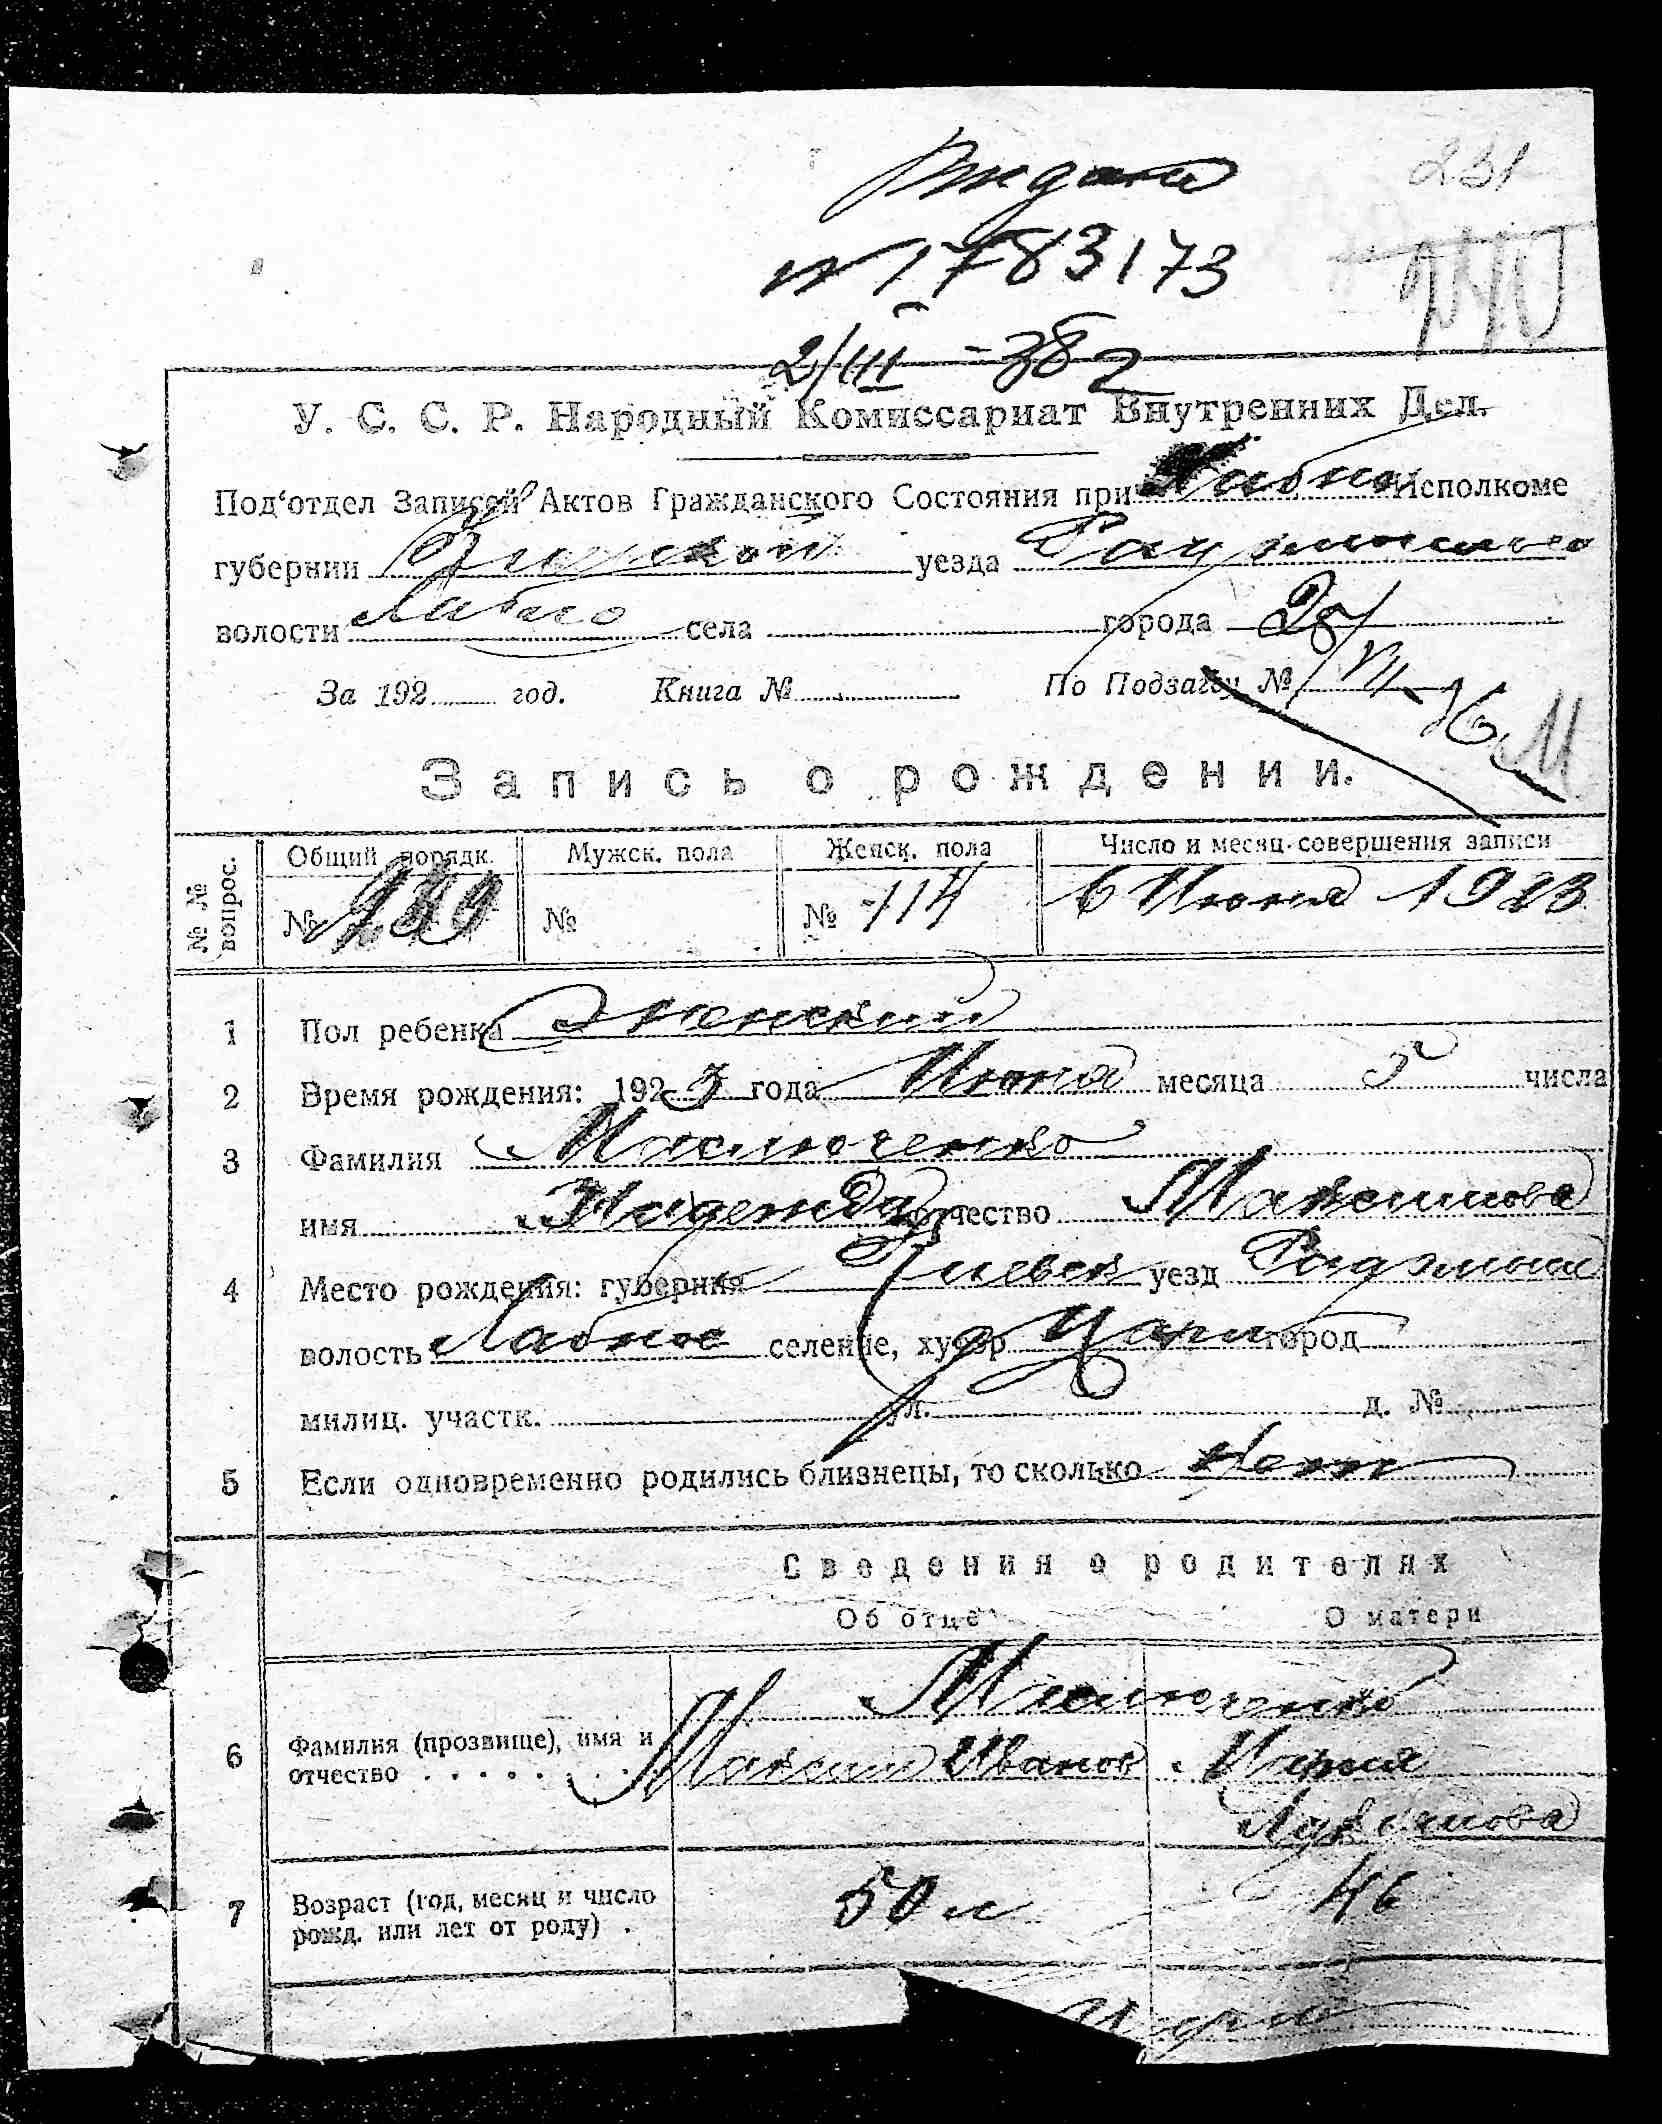 231
№ 1783173
2/III - 38 г
У. С. С. Р. Народный Комиссариат Внутренних Дел.
Под‘отдел Записей Актов Гражданского Состояния при Хабно Исполкоме
губернии Киевской уезда
волости Хабно села города
За 192 год. Книга № По Подзагсу №
Запись о рождении.
№ № вопрос. Общий порядк. Мужск. пола Женск. пола Число и месяц совершения записи
№ № № 114 6 Июня 1923
1 Пол ребенка Женский
2 Время рождения: 1923 года Июня месяца 5 числа
3 Фамилия Маслюченко
имя Надежда отчество Максимова
4 Место рождения: губерния Киевск уезд Радомысл
волость Хабное селение, хутор город
милиц. участк. ул. д. №
5 Если одновременно родились близнецы, то сколько Нет
Сведения о родителях
Об отце О матери
Маслюченко
6 Фамилия (прозвище), имя и Максим Иванов Мария
отчество . . . . . . .
7 Возраст (год, месяц и число 50 л 46
рожд. или лет от роду) .